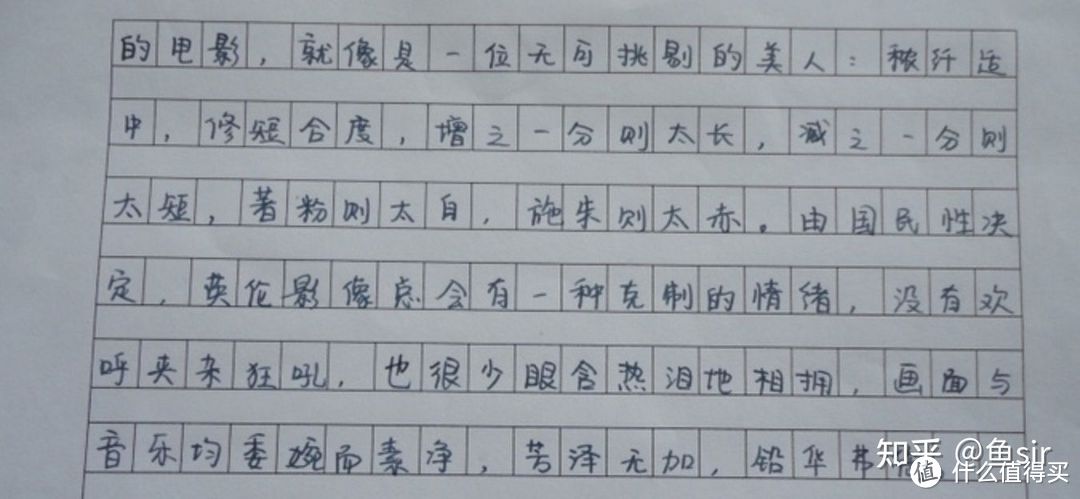 的电影，就像是一位无可挑剔的美人：秾纤适
中，修短合度，增之一分则太长，减之一分则
太短，著粉则太白，施朱则太赤。由国民性决
定，英伦影像总会有一种克制的情绪，没有欢
呼夹杂狂吼，也很少眼含热泪地相拥，画面与
音乐均委婉而素净，芳泽无加，铅华弗
知乎 @鱼sir
值 什么值得买